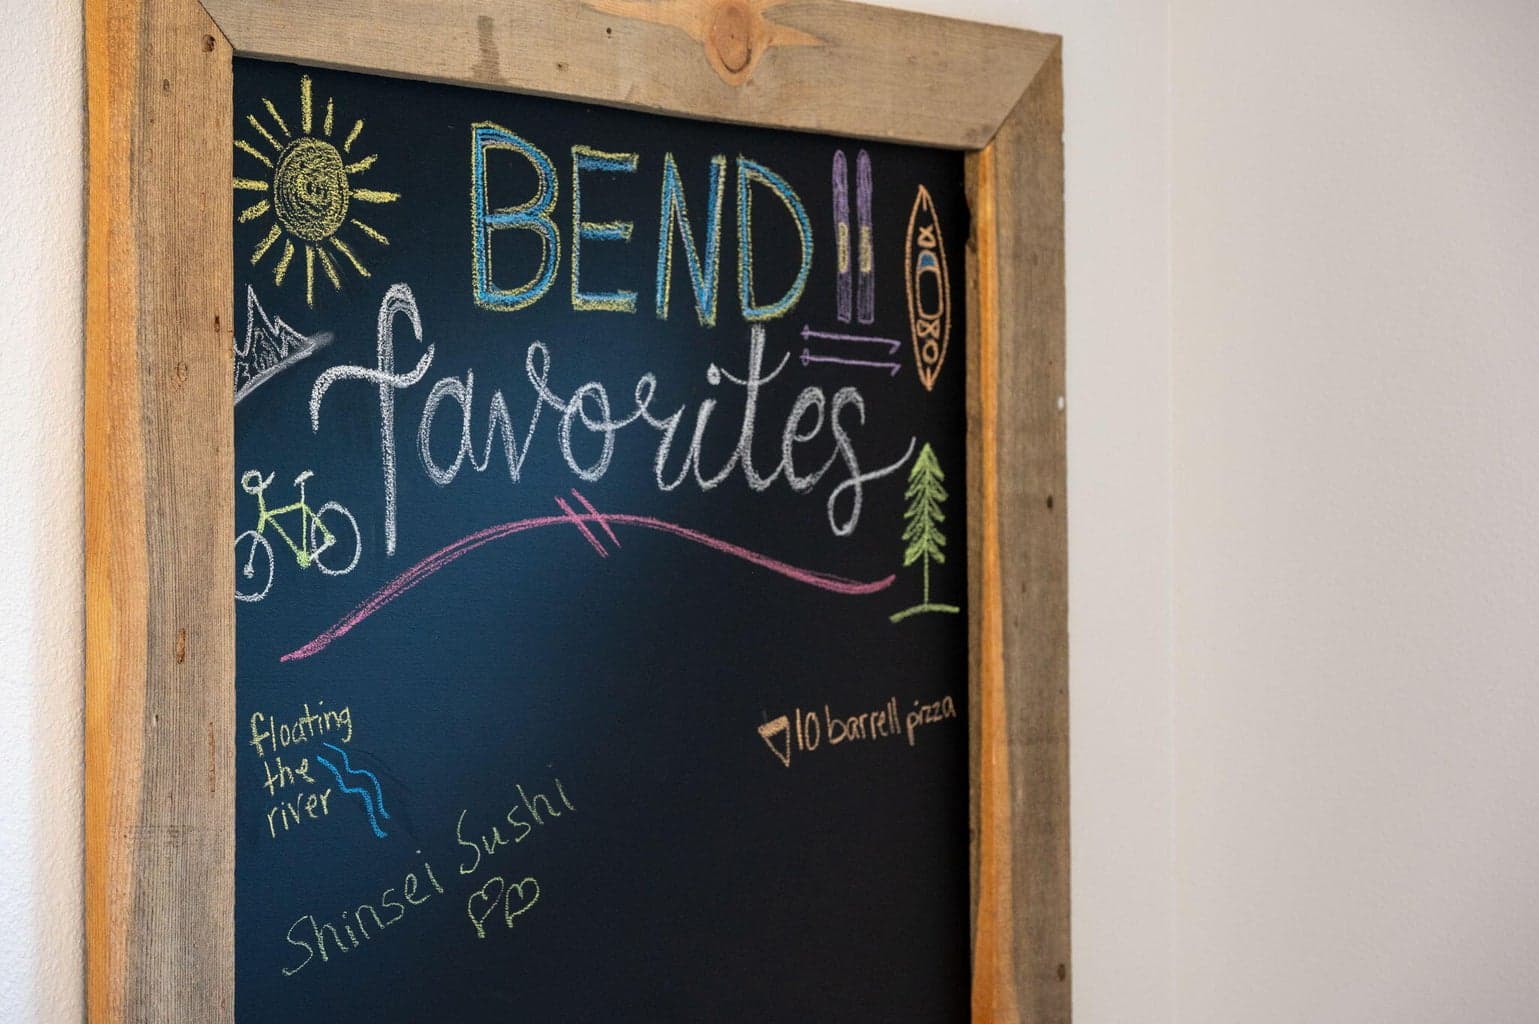 BEND
favorites
floating
the
river
10 barrell pizza
Shinsei Sushi